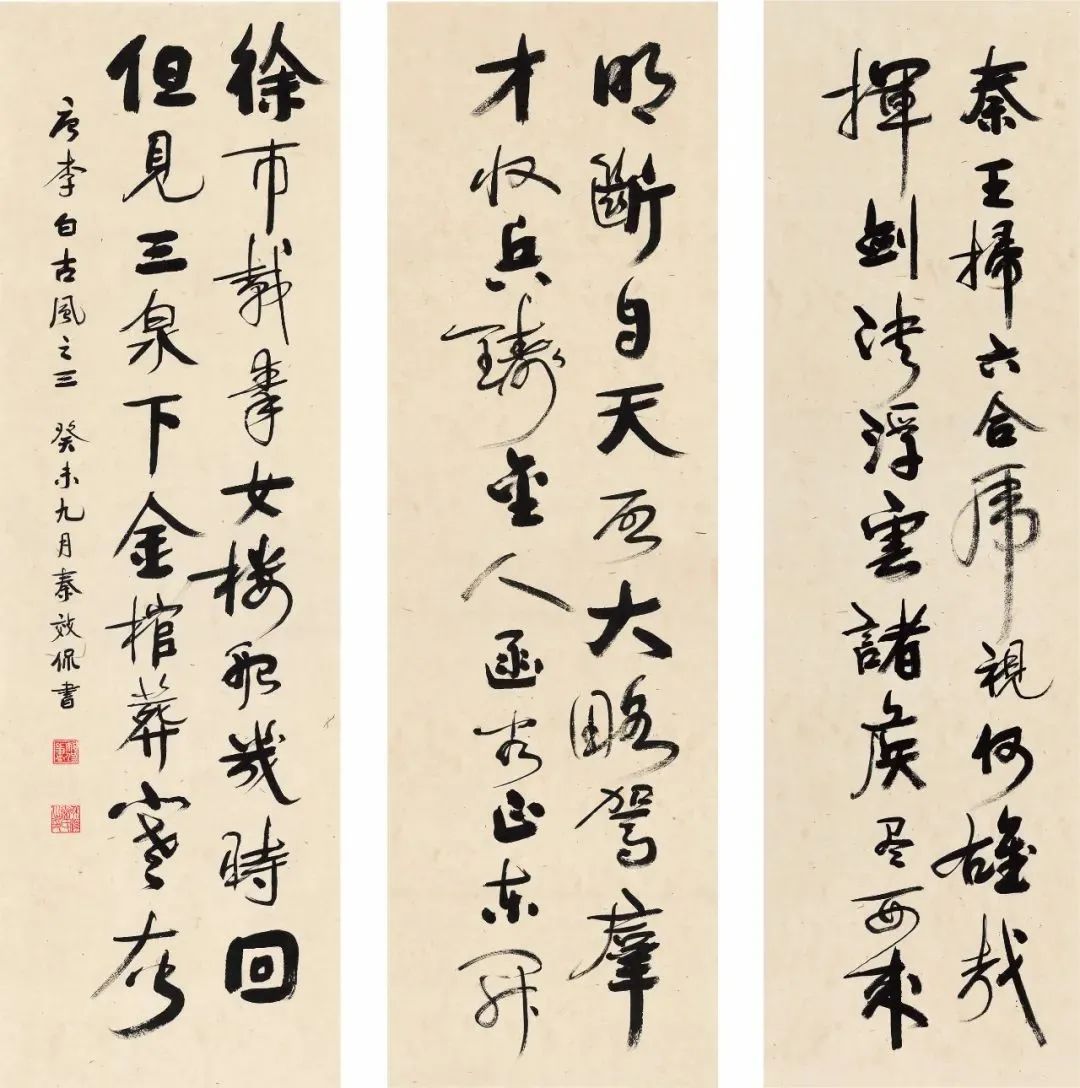 秦王掃六合虎視何雄哉
揮劍決浮雲諸侯盡西來
明斷自天啟大略駕羣
才收兵鑄金人函谷正東開
徐市載秦女楼船幾時回
但見三泉下金棺葬寒灰
唐李白古風之三 癸未九月秦效侃書